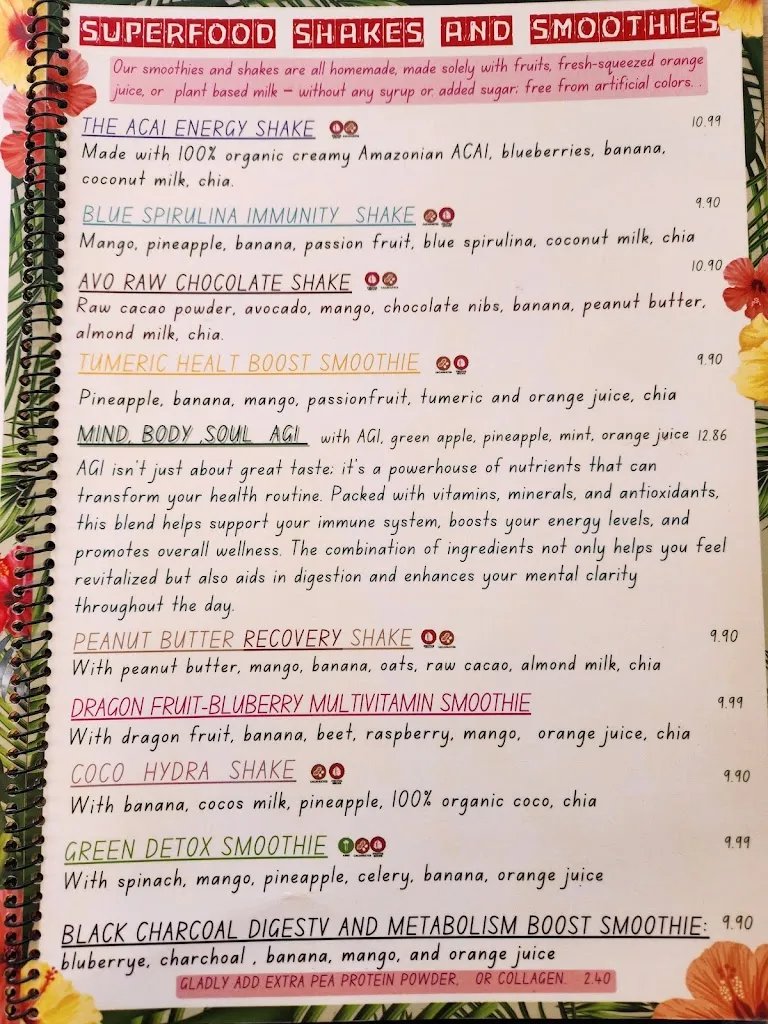 SUPERFOOD SHAKES AND SMOOTHIES
Our smoothies and shakes are all homemade, made solely with fruits, fresh-squeezed orange
juice, or plant based milk – without any syrup or added sugar; free from artificial colors. .
THE ACAI ENERGY SHAKE 10.99
Made with 100% organic creamy Amazonian ACAI, blueberries, banana,
coconut milk, chia.
BLUE SPIRULINA IMMUNITY SHAKE 9.90
Mango, pineapple, banana, passion fruit, blue spirulina, coconut milk, chia
AVO RAW CHOCOLATE SHAKE 10.90
Raw cacao powder, avocado, mango, chocolate nibs, banana, peanut butter,
almond milk, chia.
TUMERIC HEALT BOOST SMOOTHIE 9.90
Pineapple, banana, mango, passionfruit, tumeric and orange juice, chia
MIND, BODY ,SOUL AG1 with AG1, green apple, pineapple, mint, orange juice 12.86
AG1 isn't just about great taste; it's a powerhouse of nutrients that can
transform your health routine. Packed with vitamins, minerals, and antioxidants,
this blend helps support your immune system, boosts your energy levels, and
promotes overall wellness. The combination of ingredients not only helps you feel
revitalized but also aids in digestion and enhances your mental clarity
throughout the day.
PEANUT BUTTER RECOVERY SHAKE 9.90
With peanut butter, mango, banana, oats, raw cacao, almond milk, chia
DRAGON FRUIT-BLUBERRY MULTIVITAMIN SMOOTHIE 9.99
With dragon fruit, banana, beet, raspberry, mango, orange juice, chia
COCO HYDRA SHAKE 9.90
With banana, cocos milk, pineapple, 100% organic coco, chia
GREEN DETOX SMOOTHIE 9.99
With spinach, mango, pineapple, celery, banana, orange juice
BLACK CHARCOAL DIGESTV AND METABOLISM BOOST SMOOTHIE: 9.90
bluberrye, charchoal , banana, mango, and orange juice
GLADLY ADD EXTRA PEA PROTEIN POWDER, OR COLLAGEN. 2.40